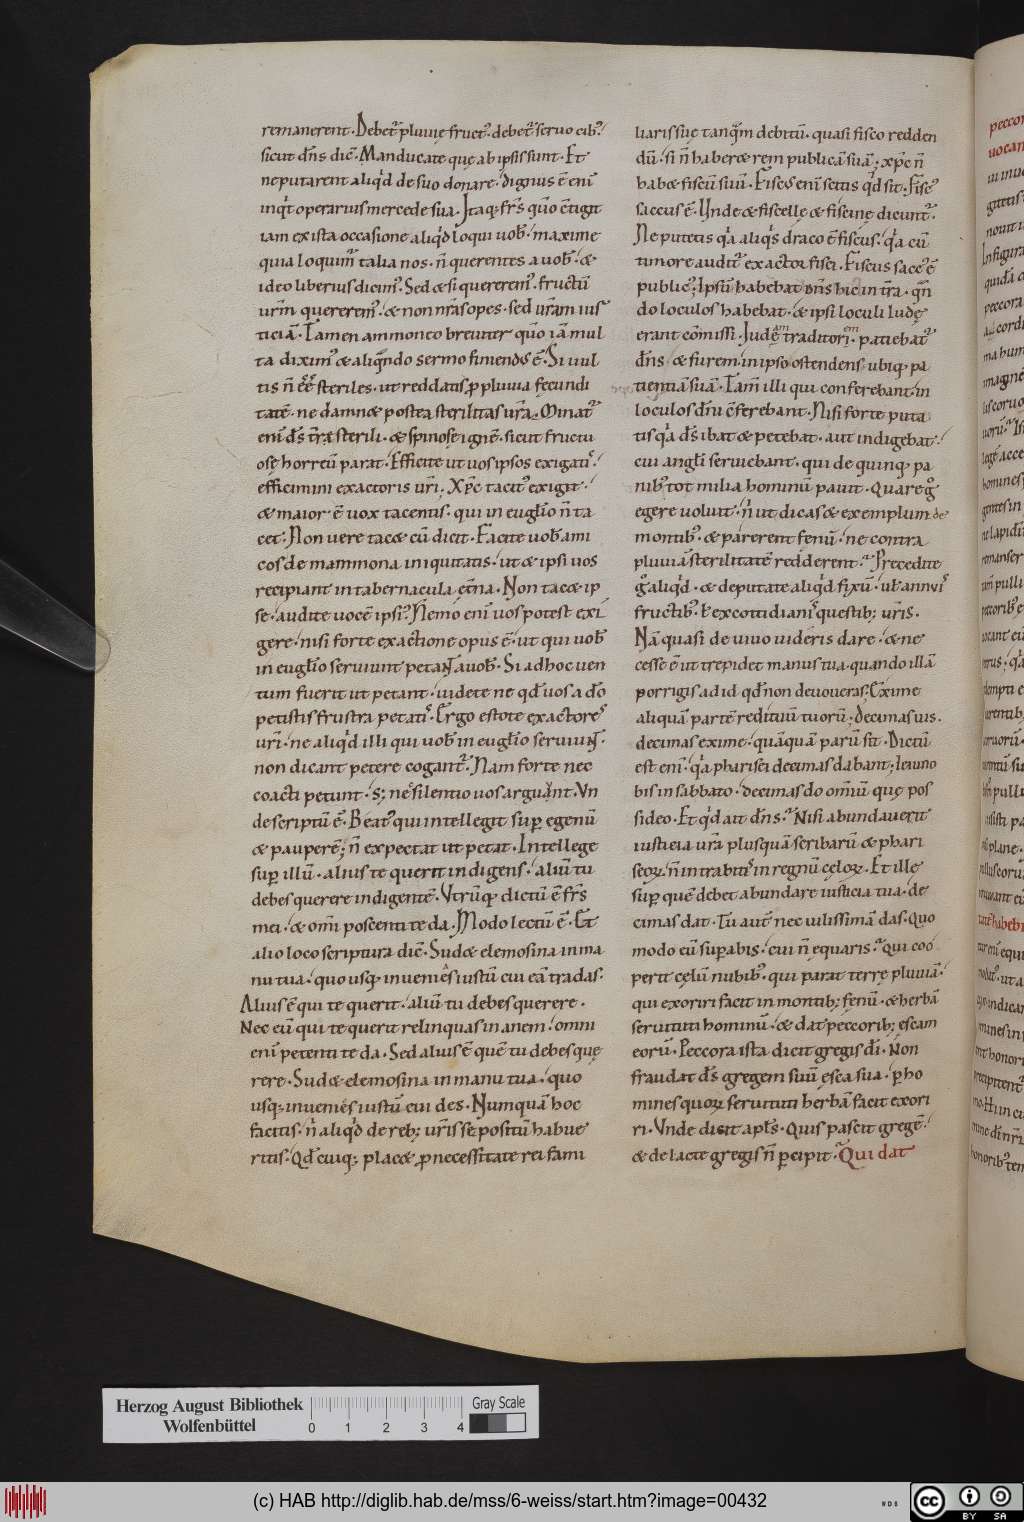 remanerent · Debet᷒ pluuię fruct᷒ · debet᷒ seruo cib᷒ ·
sicut dn̄s dic̄ · Manducate quę ab ipsis sunt · Et
ne putarent aliqͥd de suo donare · dignus ē eni̅
inqͥt operarius mercede sua · Itaq; fr̄s quō c̄tigit
iam ex ista occasione aliqͥd loqui uob̄ · maxime
quia loquim᷒ talia nos · n̄ querentes a uob̄ · &
ideo liberius dicim᷒ · Sed & si quererem᷒ · fructū
ur̄m quererem᷒ · & non nr̄as opes · sed ur̄am ius
ticiā · Tamen ammoneo breuiter quō iā mul
ta dixim᷒ & aliqn̄do sermo finiendus ē · Si uul
tis n̄ ēē steriles · ut reddatis ꝓ pluuia fecundi
tatē · ne damn& postea sterilitas ur̄a · Minat᷒
eni̅ d̄s t̄rę sterili · & spinosę ignē · sicut fructu
osę horreū parat · Efficite ut uos ipsos exigatis ·
efficimini exactoris ur̄i · Xp̄c tacit᷒ exigit ·
& maior ē uox tacentis · qui in eugl̄io n̄ ta
cet · Non uere tac& cū dicit · Facite uob̄ ami
cos de mammona iniquitatis · ut & ipsi uos
recipiant in tabernacula et̄na · Non tac& ip
se · audite uocē ipsi᷒ · Nemo eni̅ uos potest exi
gere · nisi forte exactione opus ē · ut qui uob̄
in eugl̄io seruiunt petant̄ a uob̄ · Si ad hoc uen
tum fuerit ut petant · uidete ne qd̄ uos a d̄o
petistis frustra petatis · Ergo estote exactores
ur̄i · ne aliqͥd illi qui uob̄ in eugl̄io seruiunt ·
non dicant petere cogant᷒ · Nam forte nec
coacti petunt · s; ne silentio uos arguant · Vn
de scriptū ē · Beat᷒ qui intellegit suꝑ egenū
& pauperē; n̄ expectat ut petat · Intellege
suꝑ illū · alius te querit indigens · aliū tu
debes querere indigentē · Vtrūq; dictū ē fr̄s
mei · & om̄i poscenti te da · Modo lectū ē · Et
alio loco scriptura dic̄ · Sud& elemosina in ma
nu tua · quo usq; inuenies iustū cui eā tradas ·
Alius ē qui te querit · aliū tu debes querere ·
Nec eū qui te querit relinquas inanem · omni
eni̅ petenti te da · Sed alius ē quē tu debes quę
rere · Sud& elemosina in manu tua · quo
usq; inuenies iustū cui des · Numquā hoc
facitis · n̄ aliqͥd de reb; ur̄is sepositū habue
ritis · Qd̄ cuiq; plac& ꝓ necessitate rei fami
liaris suę tanqͣ̄m debitū · quasi fisco redden
dū · si n̄ haber& rem publicā suā; xp̄c n̄
hab& fiscū suū · Fiscus eni̅ scitis qͥd sit · Fisc᷒
saccus ē · Vnde & fiscelle & fiscine dicunt᷒ ·
Ne putetis qͥa aliqͥs draco ē fiscus · qͥa cū
timore audit᷒ exactor fisci · Fiscus sacc᷒ ē
public᷒; Ipsū habebat dn̄s hic in t̄ra · qn̄
do loculos habebat · & ipsi loculi Iudę
erant cōmissi · Iudęam traditorem · patiebat᷒
dn̄s · & furem in ipso ostendens ubiq; pa
tientiā suā · Tam̄ illi qui conferebant · in
loculos dn̄i c̄ferebant · Nisi forte puta
tis qͥa d̄s ibat & petebat · aut indigebat ·
cui angl̄i seruiebant · qui de quinq; pa
nib᷒ tot milia hominū pauit · Quare gͦ
egere uoluit · n̄ ut dicas & exemplum de
montib᷒ · & parerent fenū · ne contra
pluuiā sterilitatē redderent · Precedite
gͦ aliqͥd · & deputate aliqͥd fixū · uł annuis
fructib᷒ · ł ex cottidianis questib; ur̄is ·
Nā quasi de uiuo uideris dare · & ne
cesse ē ut trepidet manus tua · quando illā
porrigis ad id qd̄ non deuoueras · Exime
aliquā partē redituū tuorū · decimas uis ·
decimas exime · quāquā parū sit · Dictū
est eni̅ · qͥa pharisei decimas dabant; Ieiuno
bis in sabbato · decimas do om̄iū quę pos
sideo · Et qͥd ait dn̄s · Nisi abundauerit
iusticia ur̄a plus quā scribarū & phari
seoꝝ · n̄ intrabitis in regnū cęloꝝ · Et ille
suꝑ quē debet abundare iusticia tua · de
cimas dat · Tu aut̄ nec uilissimā das · Quo
modo eū suꝑabis · cui n̄ equaris · Qui coo
perit cęlū nubib᷒ · qui parat terrę pluuiā ·
qui exoriri facit in montib; fenū · & herbā
seruituti hominū · & dat peccorib; escam
eorū · Peccora ista dicit gregis d̄i · Non
fraudat d̄s gregem suū esca sua · ꝑ ho
mines quoꝝ seruituti herbā facit exori
ri · Vnde dicit apl̄s · Quis pascit gregē ·
& de lacte gregis n̄ ꝑcipit · Qui dat
Herzog August Bibliothek
Wolfenbüttel
0 1 2 3 4
Gray Scale
(c) HAB http://diglib.hab.de/mss/6-weiss/start.htm?image=00432
WDB
cc BY SA